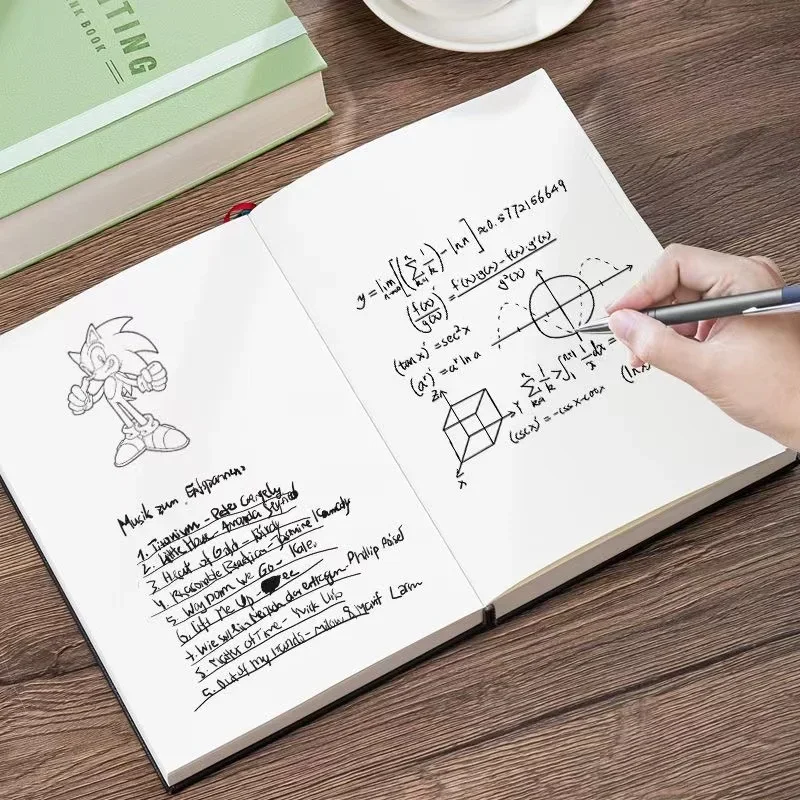 ATING
NK BOOK
Musik zum Entspannen
1. Titanium - Peter Gergely
2. Little House - Amanda
3. Heart of Gold - Birdy
4. Reasonable - Jasmine Kennedy
5. Way Down We Go - Kaleo
6. Lift Me Up -
7. Wie soll ein Mensch das ertragen - Philip Poisel
8. Matter of Time -
9. Out of My Hands -
y = lim n→∞ [(∑ k=1 n 1/k) - ln n] ≈ 0.5772156649
(f(x)/g(x))' = f'(x)·g(x) - f(x)·g'(x) / g²(x)
(tan x)' = sec²x
(aˣ)' = aˣ ln a
∑ k=1 n 1/k > ∫ 1 n+1 1/x dx =
(ln x)
(csc x)' = -csc x·cot x
Z
Y
X